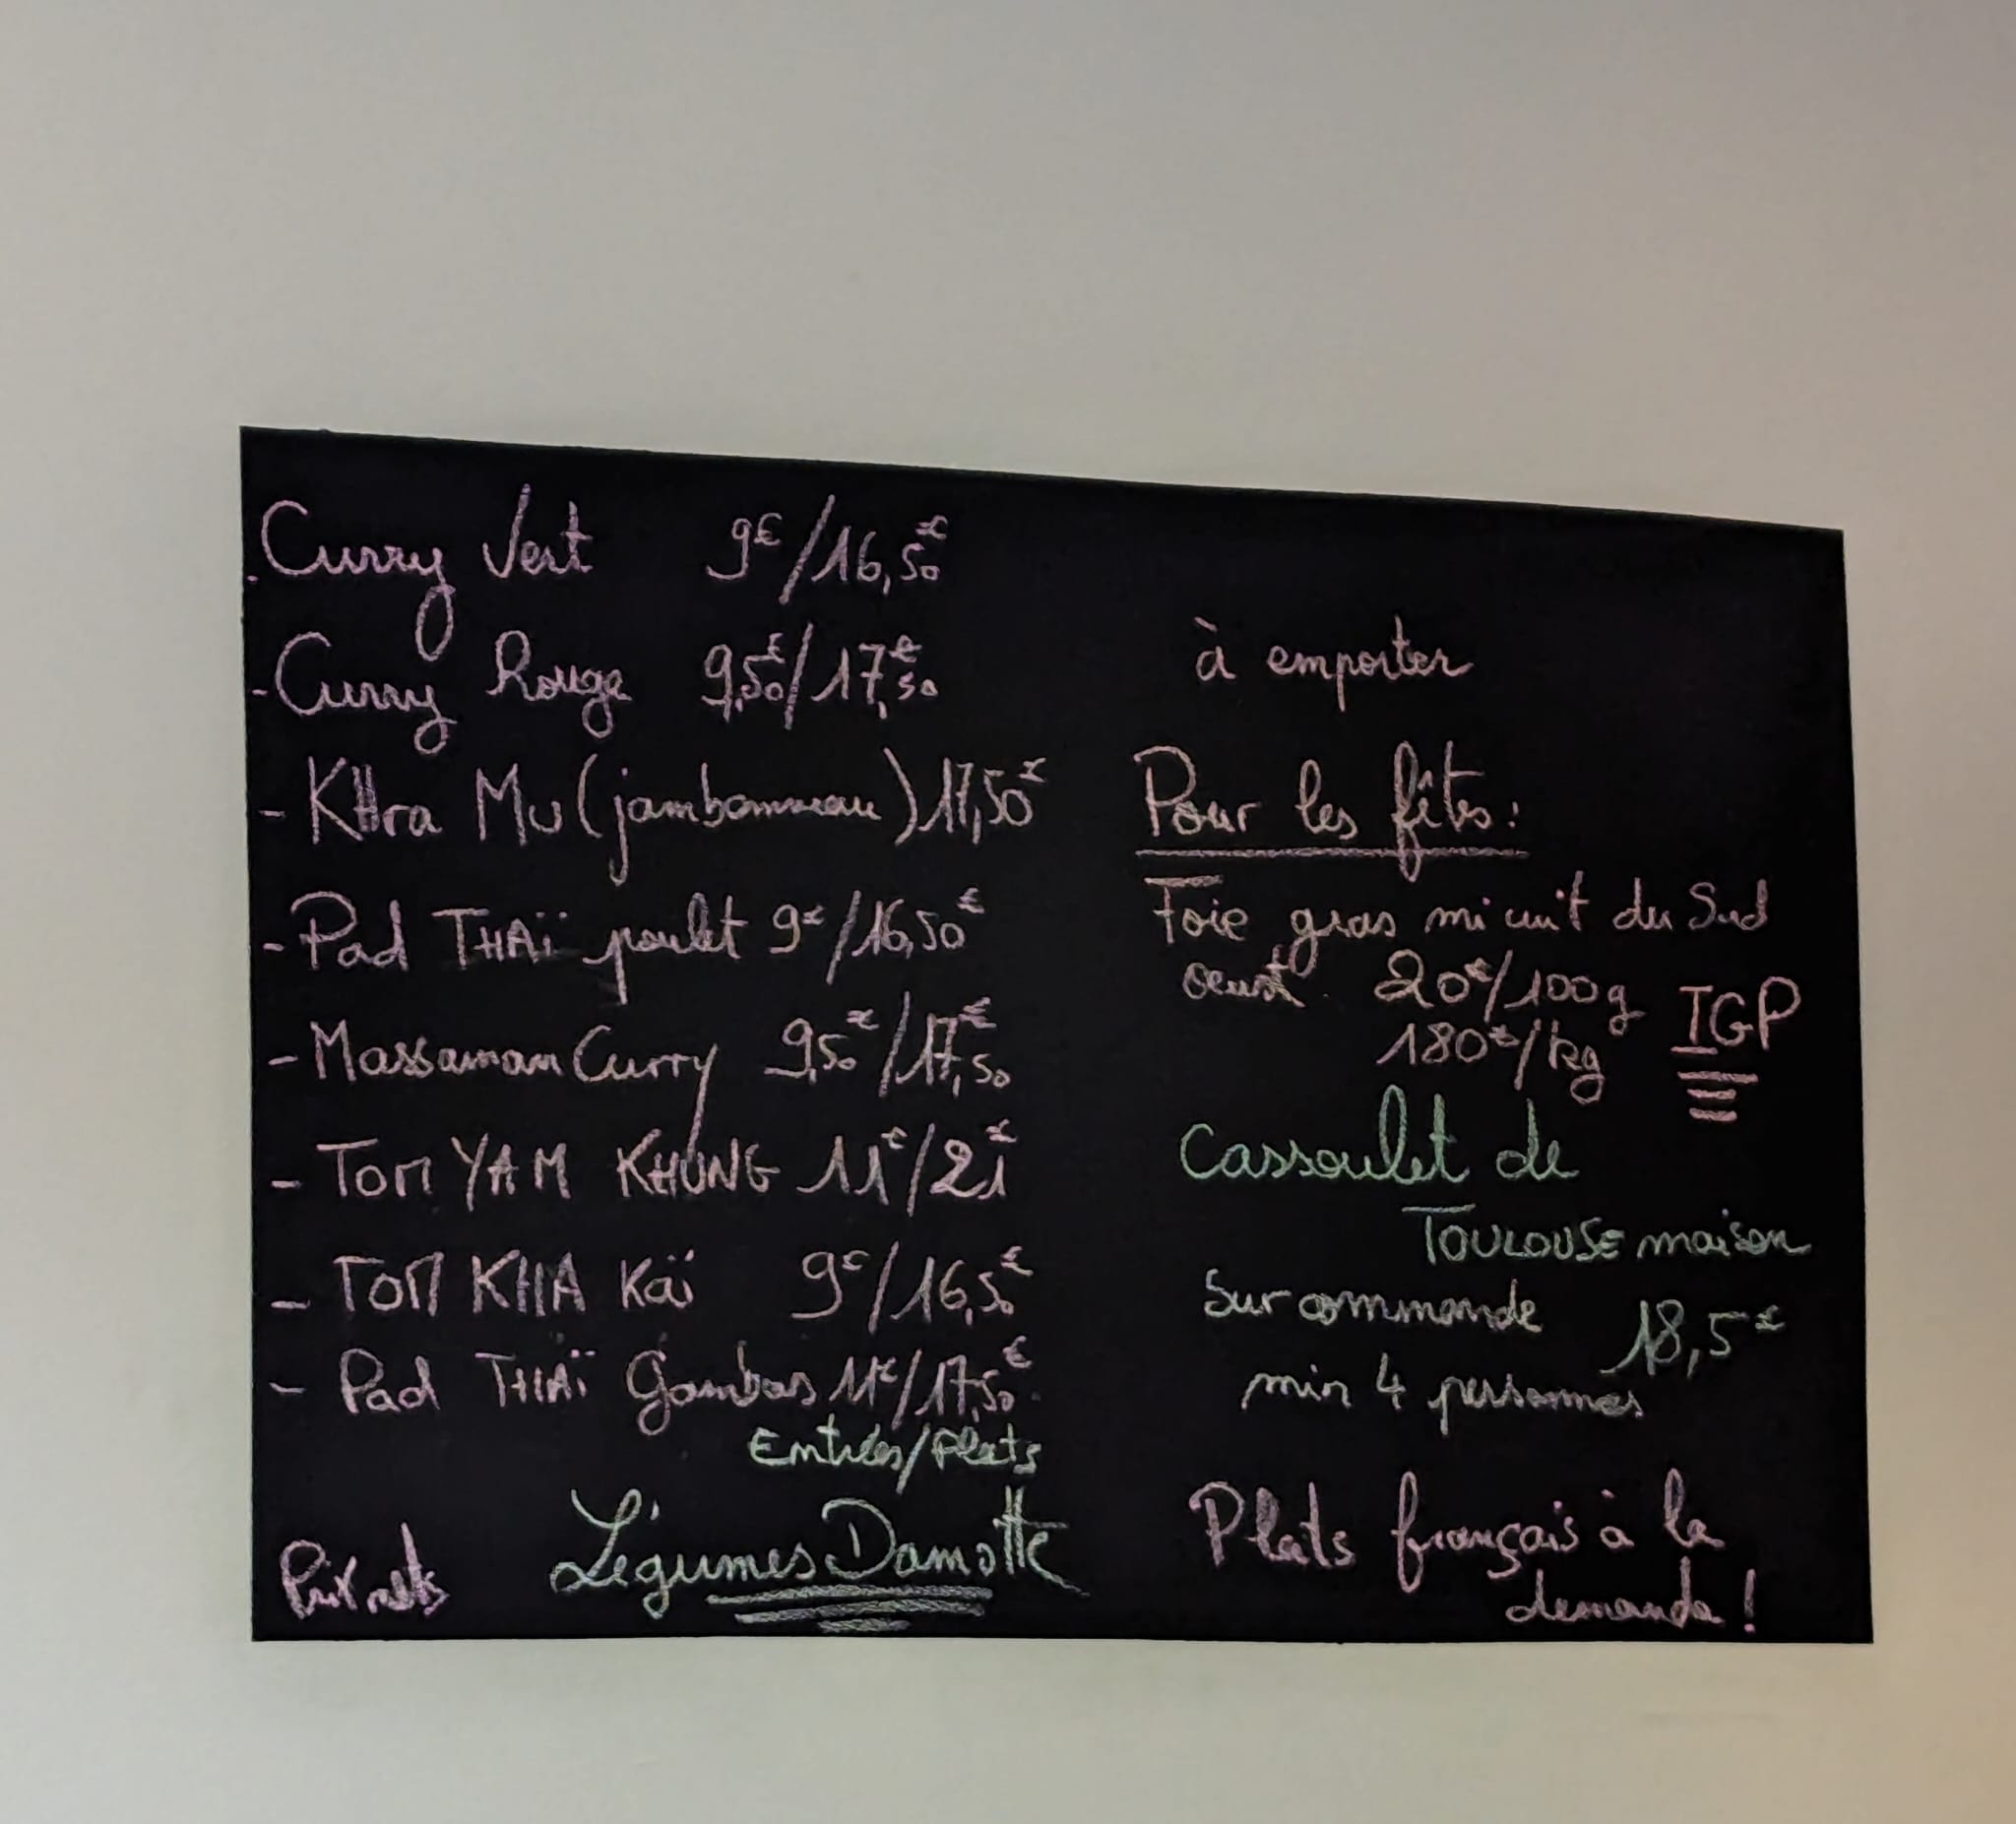 . Curry Vert 9€/16,50€
- Curry Rouge 9,50€/17,50€
- KHra Mu (jambonneau) 17,50€
- Pad THAÏ poulet 9€/16,50€
- Massaman Curry 9,50€/17,50€
- TOM YAM KHUNG 11€/21€
- TOM KHA Kaï 9€/16,50€
- Pad THAÏ Gambas 11€/17,50€
Entrées/Plats
Légumes Damotte
Prix nets
à emporter
Pour les fêtes:
Foie gras mi cuit du Sud
ouest 20€/100g IGP
180€/kg
Cassoulet de
TOULOUSE maison
Sur commande 18,5€
min 4 personnes
Plats français à la
demande!